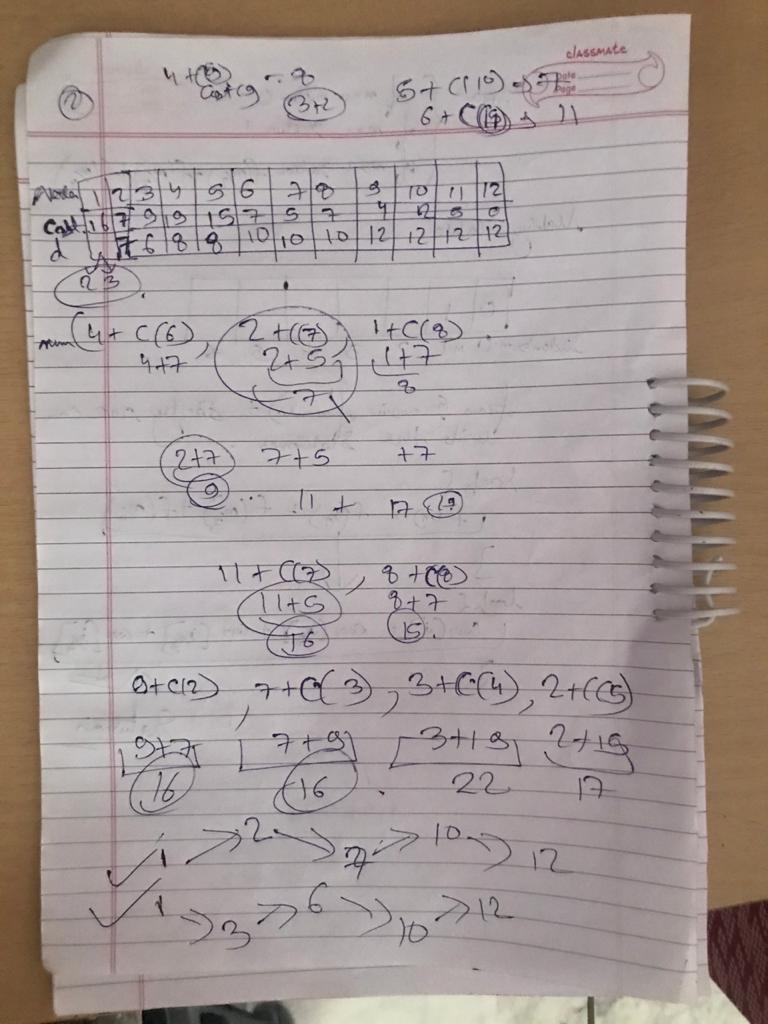 classmate
Date
Page
② 4+C(9) = 8 5+C(10) → 7
Cost 9 (3+2) 6+C(10) → 11
Node 1 2 3 4 5 6 7 8 9 10 11 12
Cost 16 7 9 19 15 7 5 7 4 2 5 0
d 7 6 8 8 10 10 10 12 12 12 12
2 3
min (4+C(6), 2+C(7), 1+C(8)
4+7 2+5, 1+7
7 8
2+7 7+5 +7
9 11+ 17 19
11+C(7), 8+C(8)
11+5 8+7
16 15.
9+C(2), 7+C(3), 3+C(4), 2+C(5)
9+7 7+9 3+19 2+15
16 16. 22 17
✓ 1 → 2 → 7 → 10 → 12
✓ 1 → 3 → 6 → 10 → 12